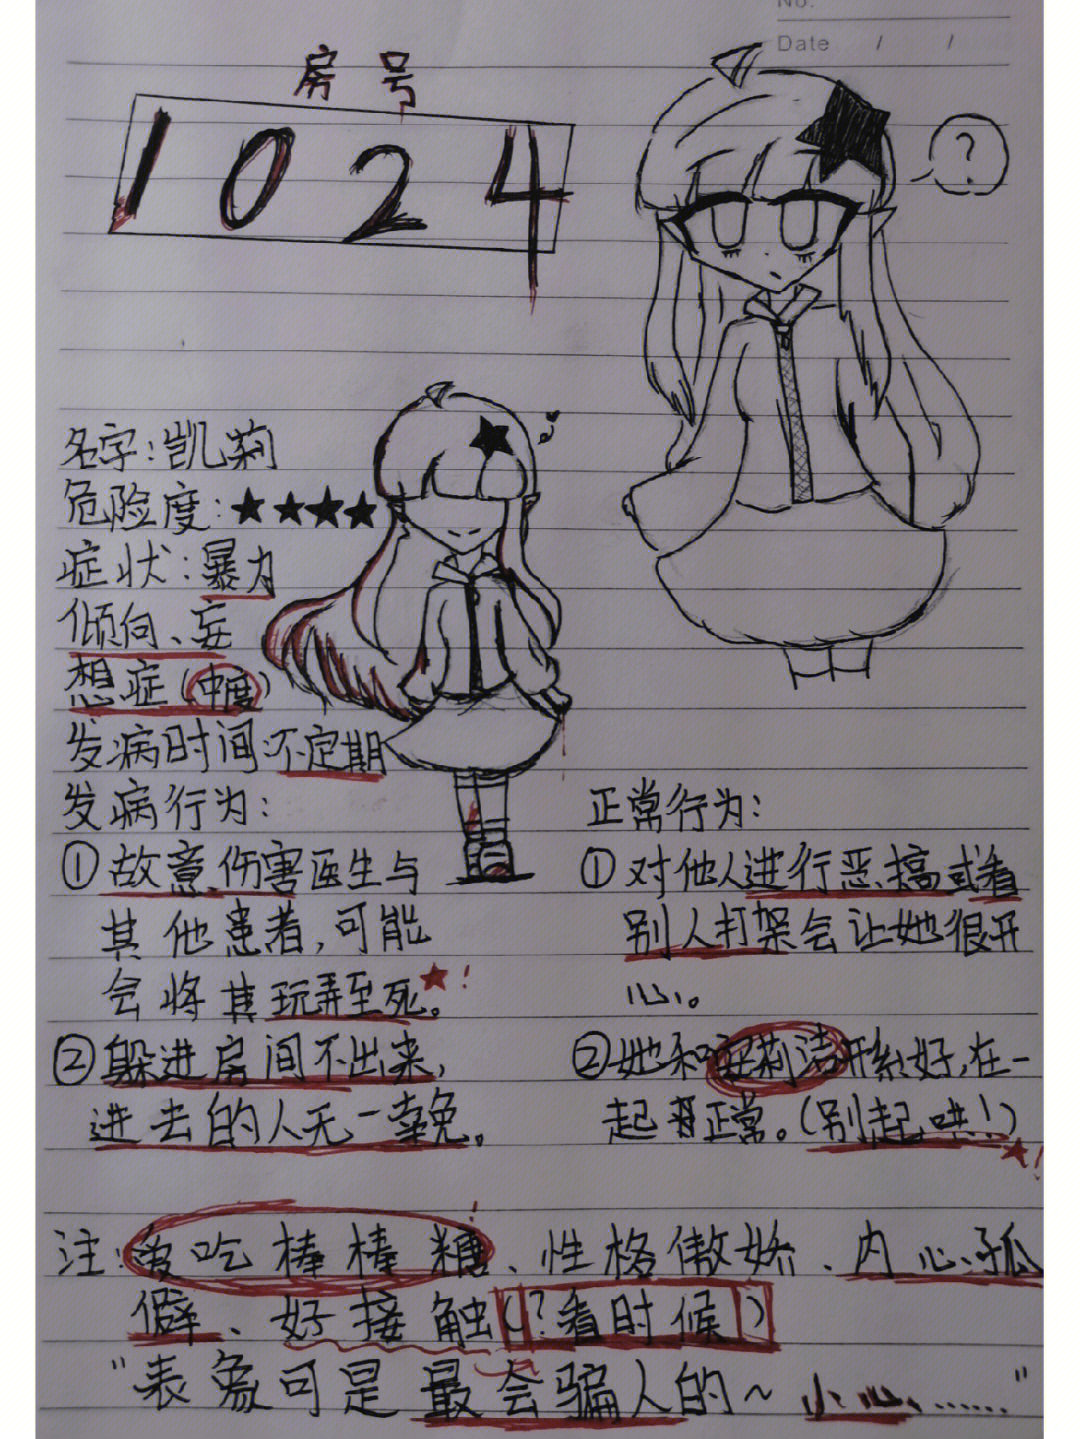 No.
Date / /
房号
1024
?
名字:凯莉
危险度:★★★★
症状:暴力
倾向、妄
想症(中度)
发病时间:不定期
发病行为:
①故意伤害医生与
其他患者,可能
会将其玩弄至死。★!
②躲进房间不出来,
进去的人无一幸免。
正常行为:
①对他人进行恶搞或看
别人打架会让她很开
心。
②她和安莉洁关系好,在一
起才正常。(别起哄!)
★!
注:爱吃棒棒糖、性格傲娇、内心孤
僻、好接触(?看时候)
"表象可是最会骗人的~小心……"